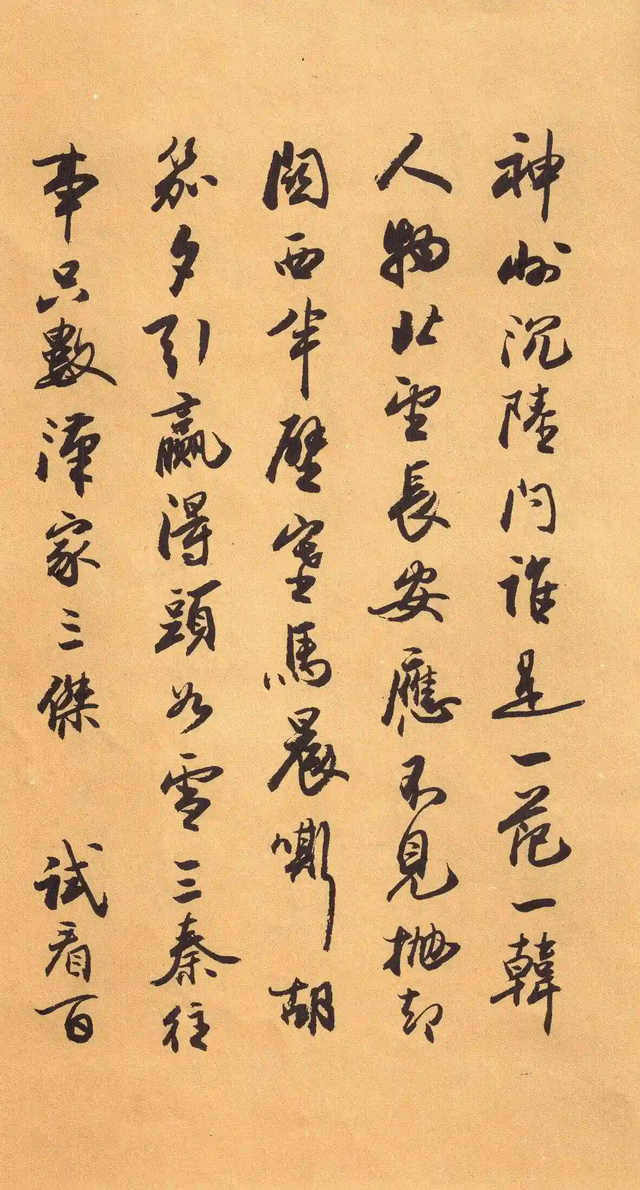 神州沉陸問誰是一范一韓
人物北望長安應不見抛却
関西半壁塞馬晨嘶胡
笳夕引贏得頭如雪三秦往
事只數漢家三傑 試看百